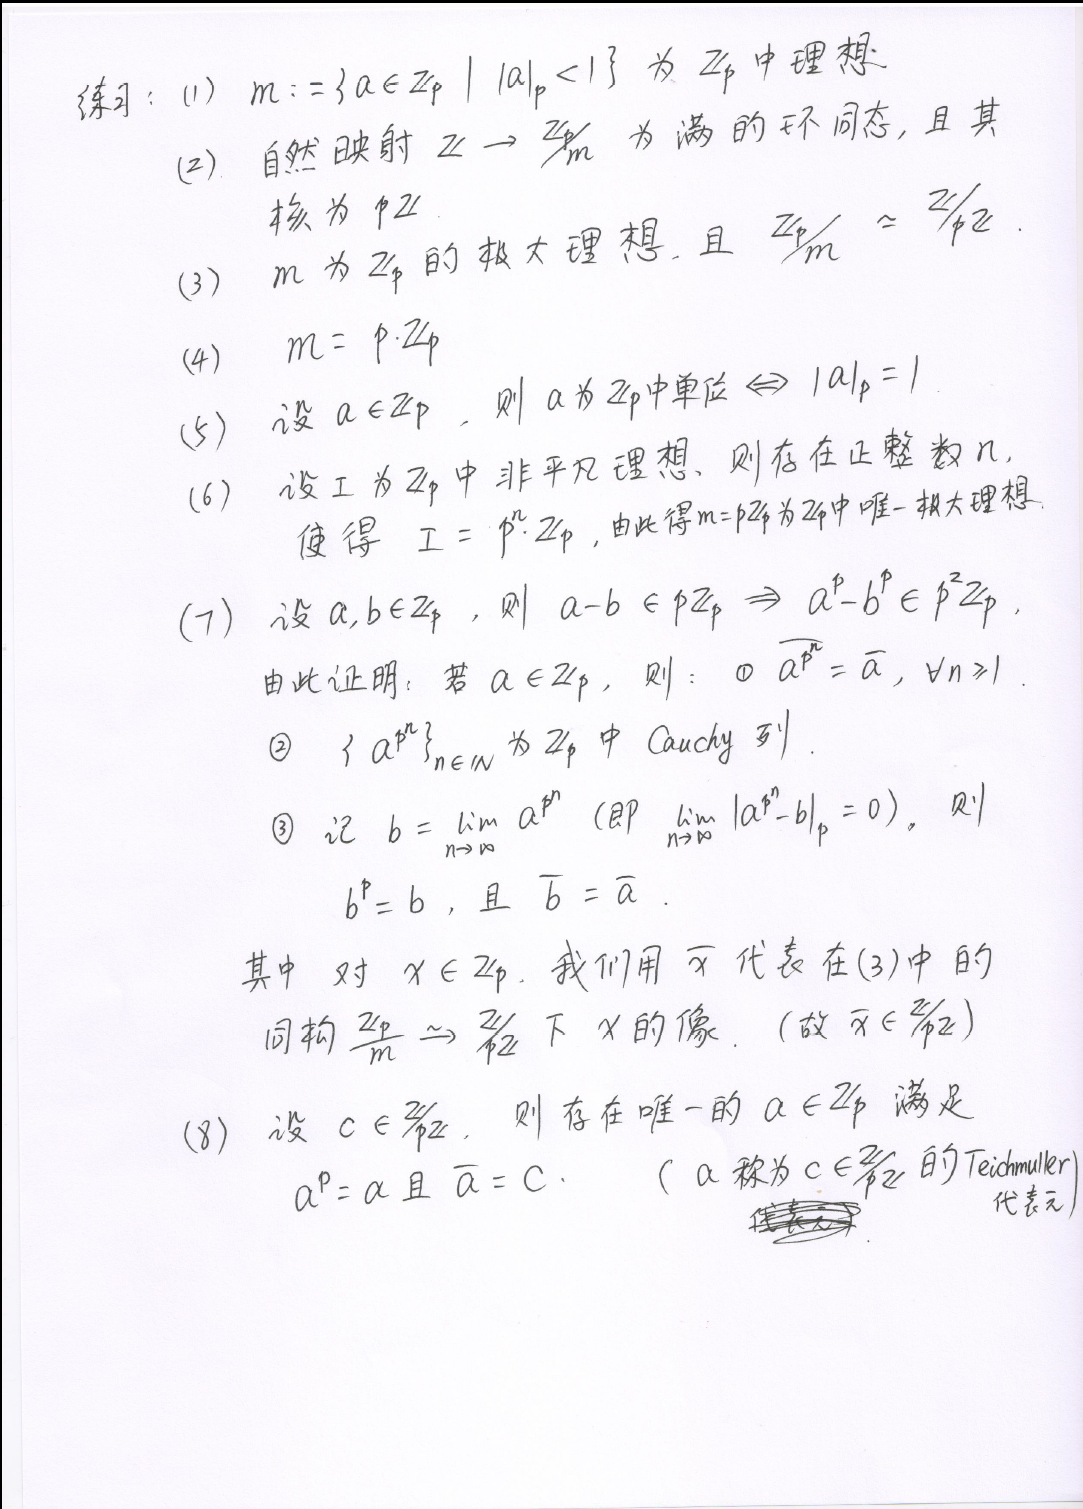 练习: (1) m := {a ∈ ℤp | |a|p < 1} 为 ℤp 中理想
(2) 自然映射 ℤ → ℤp/m 为满的环同态, 且其
核为 pℤ.
(3) m 为 ℤp 的极大理想. 且 ℤp/m ≃ ℤ/pℤ.
(4) m = p·ℤp
(5) 设 a ∈ ℤp, 则 a 为 ℤp 中单位 ⇔ |a|p = 1
(6) 设 I 为 ℤp 中非平凡理想、则存在正整数 n,
使得 I = pⁿ·ℤp, 由此得 m = pℤp 为 ℤp 中唯一极大理想.
(7) 设 a, b ∈ ℤp, 则 a-b ∈ pℤp ⇒ a^p - b^p ∈ p²ℤp,
由此证明: 若 a ∈ ℤp, 则: ① \overline{a^{p^n}} = \overline{a}, ∀n ≥ 1.
② {a^{p^n}}_{n∈ℕ} 为 ℤp 中 Cauchy 列.
③ 记 b = lim_{n→∞} a^{p^n} (即 lim_{n→∞} |a^{p^n} - b|p = 0)。则
b^p = b, 且 \overline{b} = \overline{a}.
其中 对 x ∈ ℤp. 我们用 \overline{x} 代表在(3)中的
同构 ℤp/m ~→ ℤ/pℤ 下 x 的像. (故 \overline{x} ∈ ℤ/pℤ)
(8) 设 c ∈ ℤ/pℤ, 则存在唯一的 a ∈ ℤp 满足
a^p = a 且 \overline{a} = c. (a 称为 c ∈ ℤ/pℤ 的 Teichmuller
代表元)